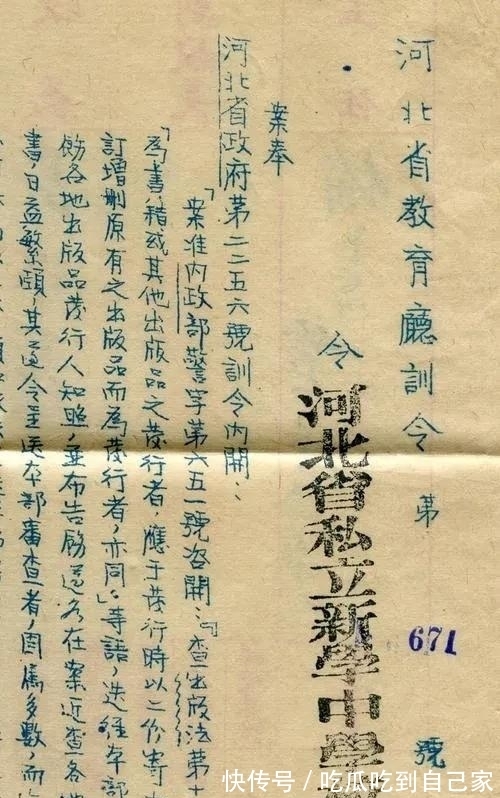 河北省教育廳訓令 第 671 號
令 河北省私立新學中學
案奉
河北省政府第二二五六號訓令內開：
「案准內政部警字第六五一號咨開：「查出版法第十
「為書籍或其他出版品之發行者，應于發行時以二份寄
訂增刪原有之出版品而為發行者，亦同」等語，迭經本部
飭各地出版品發行人知照，並布告飭遵各在案近查各
書，日益繁頤，其遵令呈送本部審查者，固屬多數，而
快传号／吃瓜吃到自己家